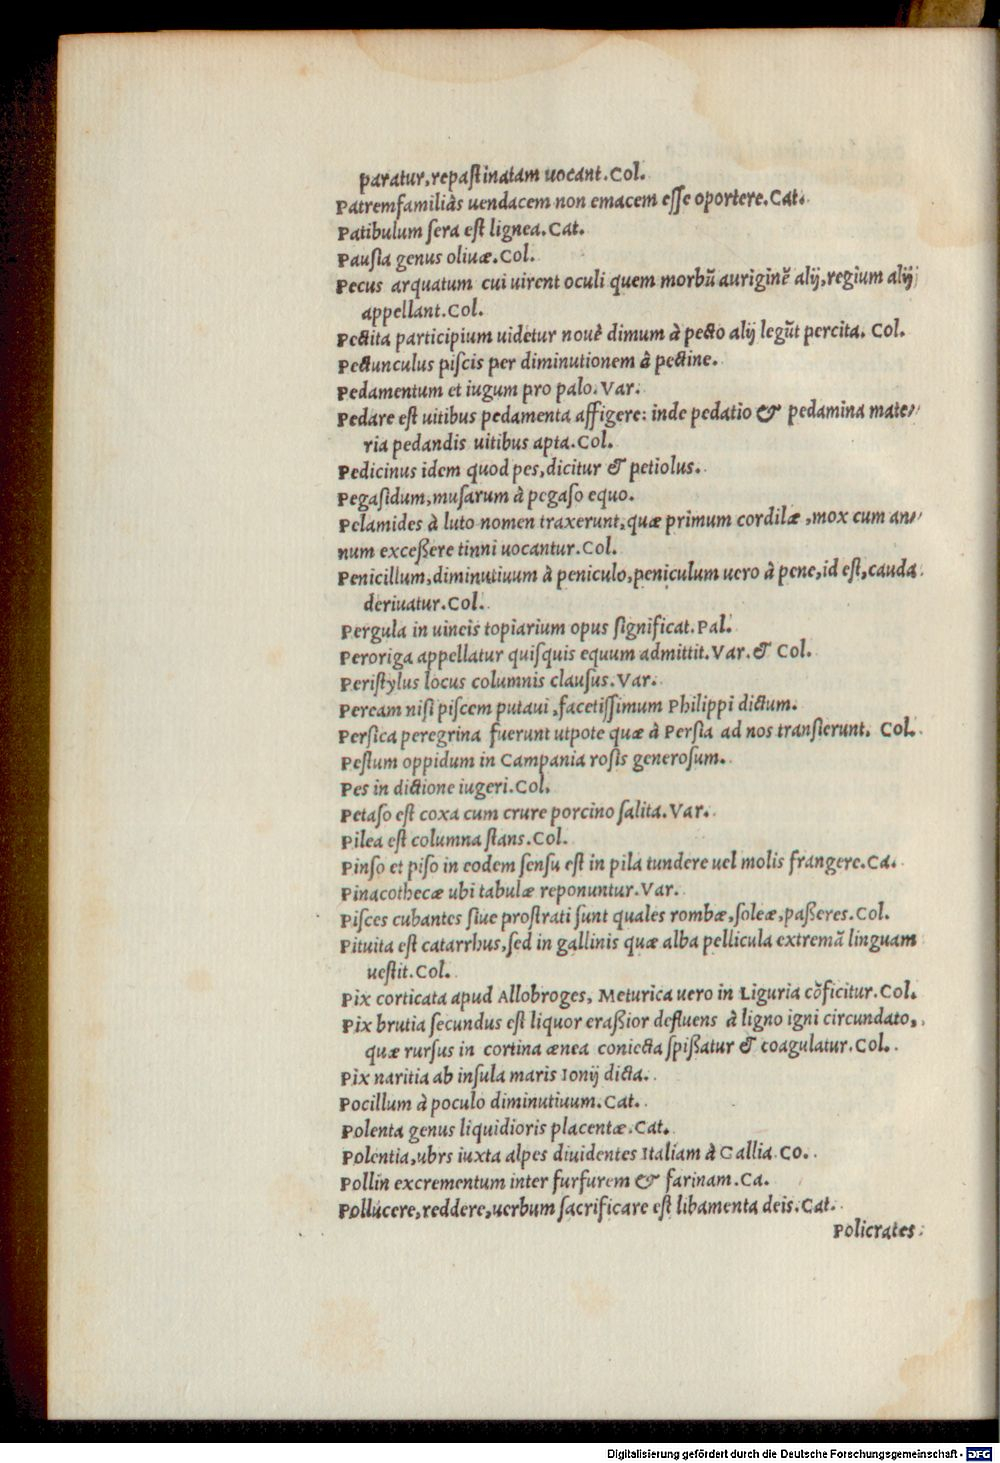 paratur, repaſtinatam uocant. Col.
Patremfamiliàs uendacem non emacem eſſe oportere. Cat.
Patibulum ſera eſt lignea. Cat.
Pauſia genus oliuæ. Col.
Pecus arquatum cui uirent oculi quem morbũ auriginẽ alij, regium alij
appellant. Col.
Pectita participium uidetur nouè dimum à pecto alij legũt percita. Col.
Pectunculus piſcis per diminutionem à pectine.
Pedamentum et iugum pro palo. Var.
Pedare eſt uitibus pedamenta affigere: inde pedatio & pedamina mate⸗
ria pedandis uitibus apta. Col.
Pedicinus idem quod pes, dicitur & petiolus.
Pegaſidum, muſarum à pegaſo equo.
Pelamides à luto nomen traxerunt, quæ primum cordilæ, mox cum an⸗
num exceßere tinni uocantur. Col.
Penicillum, diminutiuum à peniculo, peniculum uero à pene, id eſt, cauda
deriuatur. Col.
Pergula in uineis topiarium opus ſignificat. Pal.
Peroriga appellatur quiſquis equum admittit. Var. & Col.
Periſtylus locus columnis clauſus. Var.
Peream niſi piſcem putaui, facetiſſimum Philippi dictum.
Perſica peregrina fuerunt utpote quæ à Perſia ad nos tranſierunt. Col.
Peſtum oppidum in Campania roſis generoſum.
Pes in dictione iugeri. Col.
Petaſo eſt coxa cum crure porcino ſalita. Var.
Pilea eſt columna ſtans. Col.
Pinſo et piſo in eodem ſenſu eſt in pila tundere uel molis frangere. Ca.
Pinacothecæ ubi tabulæ reponuntur. Var.
Piſces cubantes ſiue proſtrati ſunt quales rombæ, ſoleæ, paßeres. Col.
Pituita eſt catarrhus, ſed in gallinis quæ alba pellicula extremã linguam
ueſtit. Col.
Pix corticata apud Allobroges, Meturica uero in Liguria cõficitur. Col.
Pix brutia ſecundus eſt liquor eraßior defluens à ligno igni circundato,
quæ rurſus in cortina ænea coniecta ſpißatur & coagulatur. Col.
Pix naritia ab inſula maris Ionij dicta.
Pocillum à poculo diminutiuum. Cat.
Polenta genus liquidioris placentæ. Cat.
Polentia, ubrs iuxta alpes diuidentes Italiam à Gallia. Co.
Pollin excrementum inter furfurem & farinam. Ca.
Pollúcere, reddere, uerbum ſacrificare eſt libamenta deis. Cat.
Policrates
Digitalisierung gefördert durch die Deutsche Forschungsgemeinschaft - DFG